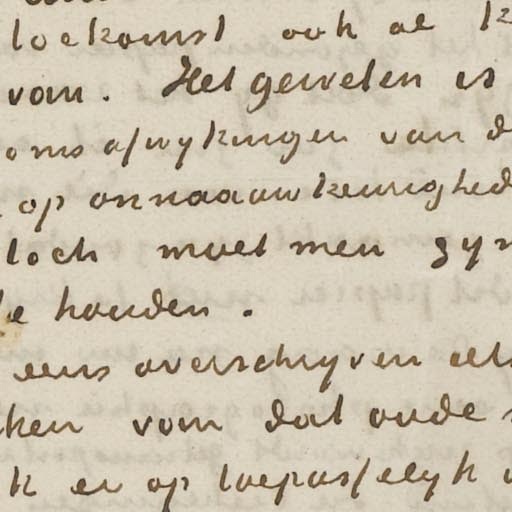 toekomst ook al k
van. Het geweten is
oms afwykingen van d
op onnaauwkeurighed
toch moet men zyn
te houden.
eens overschryven als
ken van dat oude
k er op toepasselyk